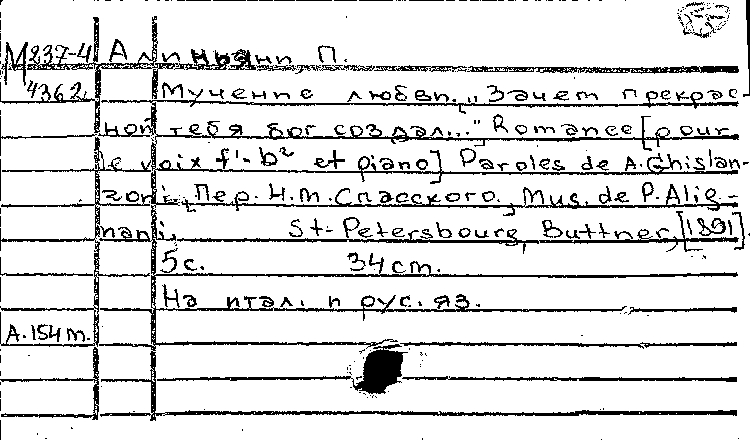 М237-4 Алиньяни, П.
4362. Мучение любви. „Зачем прекрас-
ной тебя бог создал..." Romance [pour
le voix f'-b² et piano] Paroles de A. Ghislan-
zoni, Пер. Н.М. Спасского, Mus. de P. Alig-
nani, St-Petersbourg, Buttner, [1891].
5 с. 34 cm.
На итал. и рус. яз.
А.154 м.